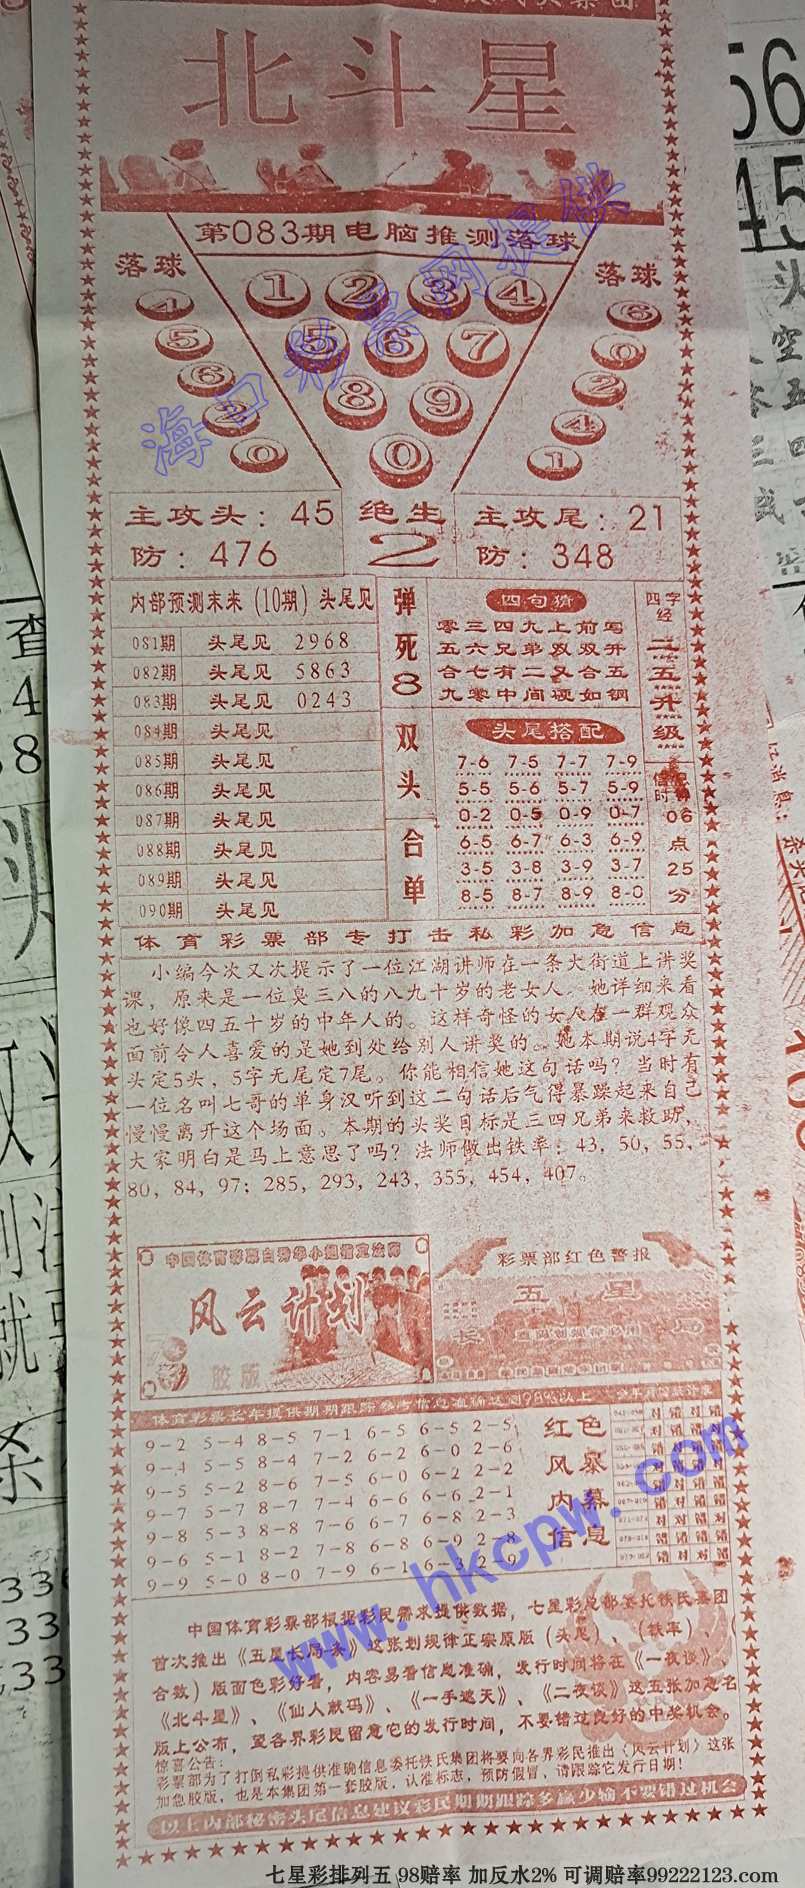 北斗星
第083期电脑推测落球
落球
4
5
6
0
1 2 3 4
5 6 7
8 9
0
落球
6
0
2
4
1
主攻头：45
防：476
绝生
2
主攻尾：21
防：348
内部预测末来（10期）头尾见
081期 头尾见 2968
082期 头尾见 5863
083期 头尾见 0243
084期 头尾见
085期 头尾见
086期 头尾见
087期 头尾见
088期 头尾见
089期 头尾见
090期 头尾见
弹死8双头
合单
四句猜
零三四九上前写
五六兄弟双双开
合七有二又合五
九零中间硬如钢
头尾搭配
7-6 7-5 7-7 7-9
5-5 5-6 5-7 5-9
0-2 0-5 0-9 0-7
6-5 6-7 6-3 6-9
3-5 3-8 3-9 3-7
8-5 8-7 8-9 8-0
四字经
二五升级
06点25分
体育彩票部专打击私彩加急信息
小编今次又次提示了一位江湖讲师在一条大街道上讲奖
课，原来是一位臭三八的八九十岁的老女人。她详细来看
也好像四五十岁的中年人的。这样奇怪的女人在一群观众
面前令人喜爱的是她到处给别人讲奖的。她本期说4字无
头定5头，5字无尾定7尾。你能相信她这句话吗？当时有
一位名叫七哥的单身汉听到这二句话后气得暴躁起来自己
慢慢离开这个场面。本期的头奖目标是三四兄弟来救助，
大家明白是马上意思了吗？法师做出铁率：43，50，55，
80，84，97；285，293，243，355，454，407。
风云计划
胶版
彩票部红色警报
五星
长 局
体育彩票长年提供期期跟踪参考信息准确达到98%以上
9-2 5-4 8-5 7-1 6-5 6-5 2-5
9-4 5-5 8-4 7-2 6-2 6-0 2-6
9-5 5-2 8-6 7-5 6-0 6-2 2-2
9-7 5-7 8-7 7-4 6-6 6-6 2-1
9-8 5-3 8-8 7-6 6-7 6-8 2-3
9-6 5-1 8-2 7-8 6-8 6-9 2-8
9-9 5-0 8-0 7-9 6-1 6-3 2-9
红色
风暴
内幕
信息
中国体育彩票部根据彩民需求提供数据，七星彩总部委托铁氏集团
首次推出《五星长局条》这张划规律正宗原版（头尾）、（铁率）、（
合数）版面色彩好看，内容易看信息准确，发行时间将在《一夜谈》、
《北斗星》、《仙人献码》、《一手遮天》、《二夜谈》这五张加急名
版上公布，望各界彩民留意它的发行时间，不要错过良好的中奖机会。
惊喜公告：
彩票部为了打倒私彩提供准确信息委托铁氏集团将要向各界彩民推出《风云计划》这张
加急胶版，也是本集团第一套胶版，认准标志，预防假冒，请跟踪它发行日期！
以上内部秘密头尾信息建议彩民期期跟踪多赢少输不要错过机会
海口彩票网提供
www.hkcpw.com
七星彩排列五 98赔率 加反水2% 可调赔率99222123.com